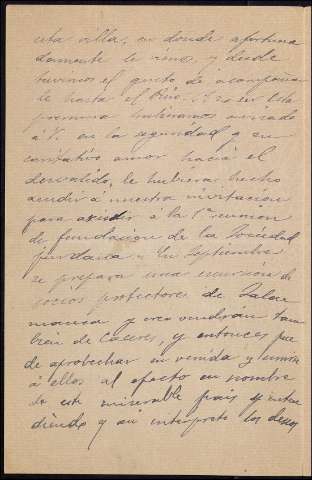 esta villa, en donde afortuna
damente le vimos y desde
tuvimos el gusto de acompañar
le hasta el Pino. A no ser esta
premura hubieramos avisado
a V. en la seguridad y su
caritativo amor hacia el
desvalido, le hubiera hecho
acudir á nuestra invitación
para asistir á la 1ª reunion
de fundación de la Sociedad
jurdana. En Septiembre
se prepara una excursión de
socios protectores de Sala
manca y creo vendrán tam
bien de Caceres, y entonces pue
de aprobechar su venida y unirse
á ellos al efecto en nombre
de este miserable pais y enten
diendo y su interprete los deseos